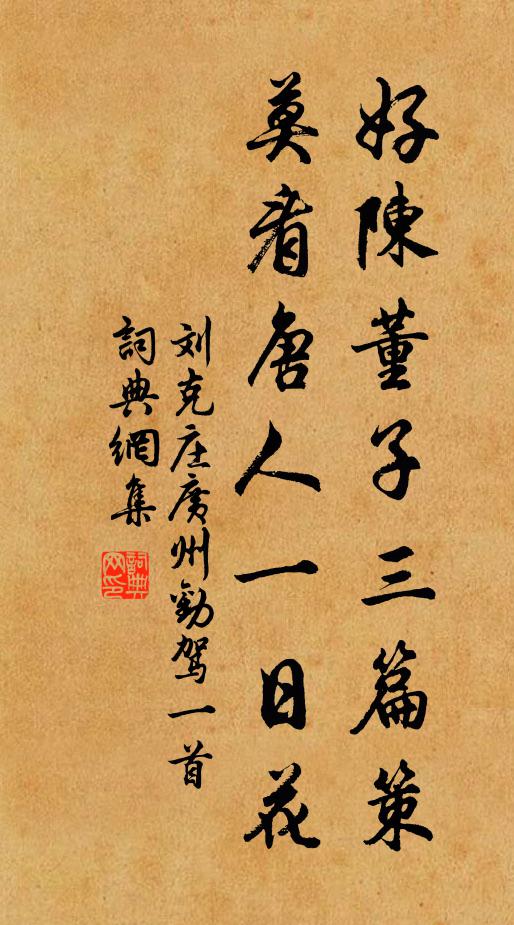 好陳董子三篇策
莫看唐人一日花
刘克庄廣州勸駕一首
詞典網集
詞典網印